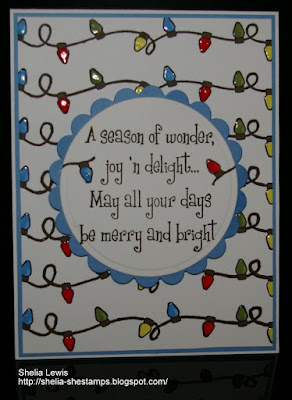 A season of wonder,
joy 'n delight...
May all your days
be merry and bright
Shelia Lewis
http://shelia-shestamps.blogspot.com/